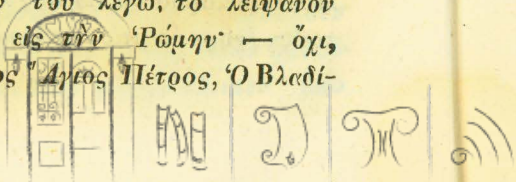 τοῦ λέγω, τὸ λείψανον
εἰς τὴν Ῥώμην· — ὄχι,
Ἅγιος Πέτρος, Ὁ Βλαδί-